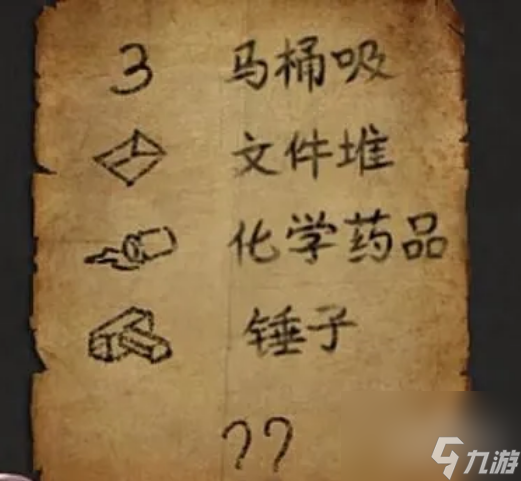 3 马桶吸
文件堆
化学药品
锤子
??
九游